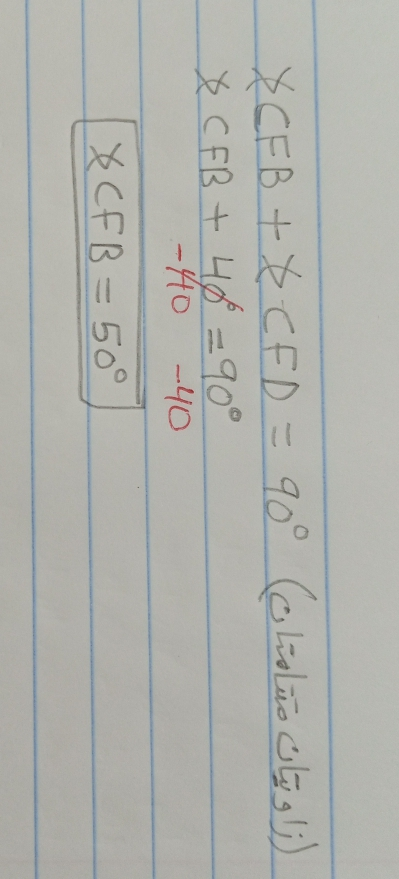 ∡CFB + ∡CFD = 90° (زاويتان متتامتان)
∡CFB + 40° = 90°
-40 -40
∡CFB = 50°